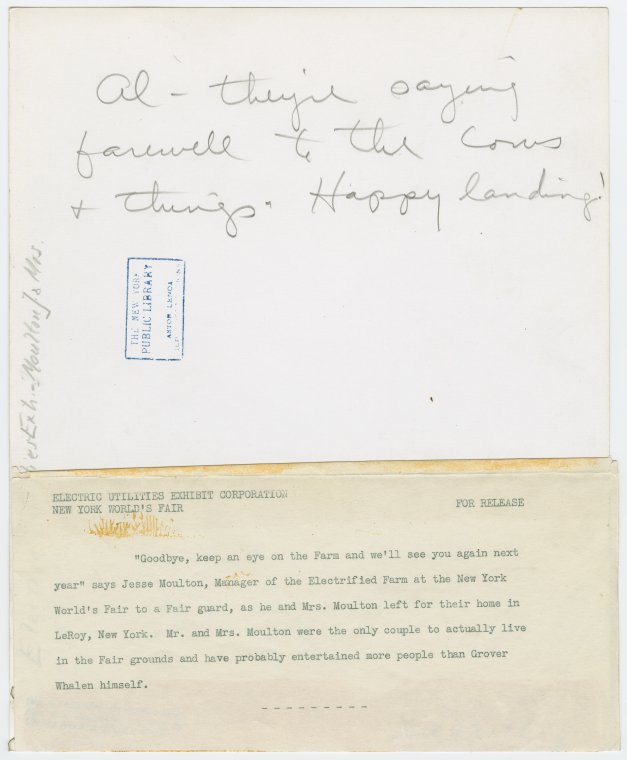 Al - they're saying
farewell to the cows
+ things. Happy landing!
THE NEW YORK
PUBLIC LIBRARY
ASTOR LENOX
Exh. - Moulton, J. & Mrs.
ELECTRIC UTILITIES EXHIBIT CORPORATION
NEW YORK WORLD'S FAIR
FOR RELEASE
"Goodbye, keep an eye on the Farm and we'll see you again next
year" says Jesse Moulton, Manager of the Electrified Farm at the New York
World's Fair to a Fair guard, as he and Mrs. Moulton left for their home in
LeRoy, New York. Mr. and Mrs. Moulton were the only couple to actually live
in the Fair grounds and have probably entertained more people than Grover
Whalen himself.
- - - - - - - - -